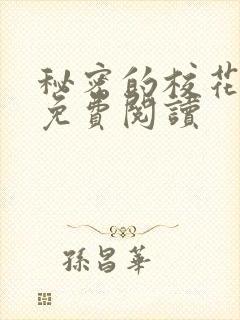 秘密的校花
免費閱讀
孫昌華